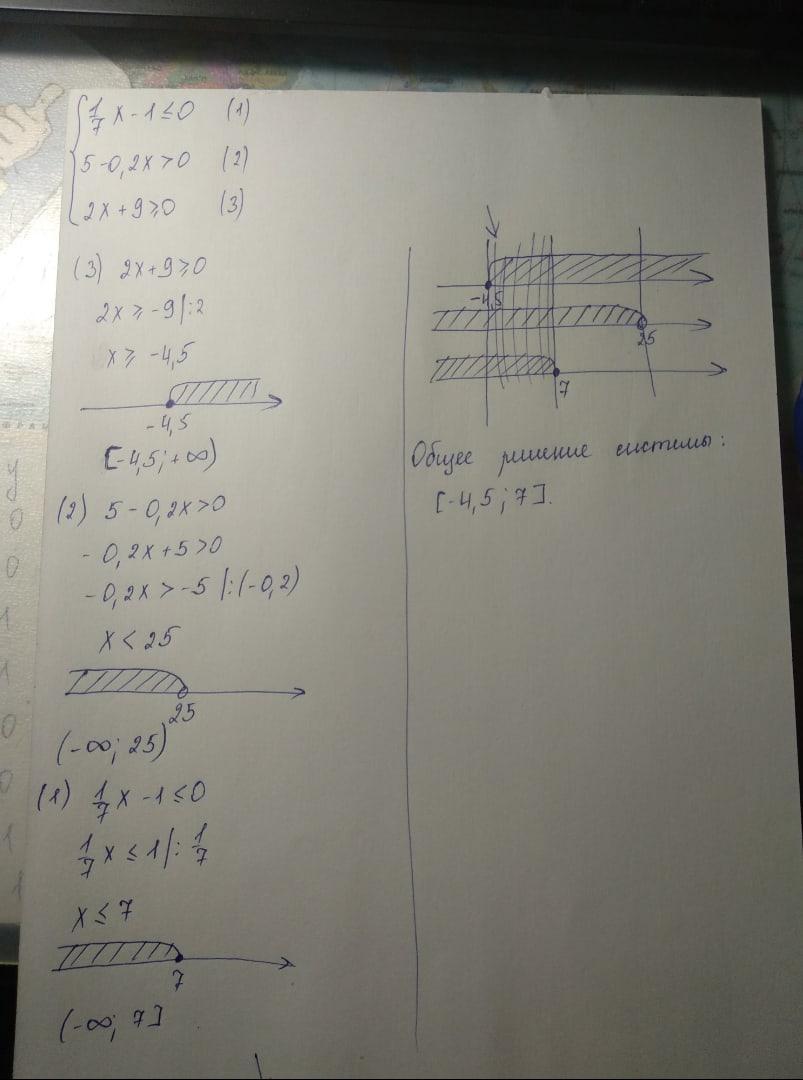 1/7 x - 1 ≤ 0 (1)
5 - 0,2x > 0 (2)
2x + 9 ≥ 0 (3)
(3) 2x + 9 ≥ 0
2x ≥ -9 |:2
x ≥ -4,5
-4,5
[-4,5; +∞)
(2) 5 - 0,2x > 0
- 0,2x + 5 > 0
- 0,2x > -5 |:(-0,2)
x < 25
25
(-∞; 25)
(1) 1/7 x - 1 ≤ 0
1/7 x ≤ 1 |: 1/7
x ≤ 7
7
(-∞; 7]
-4,5
25
7
Общее решение системы:
[-4,5; 7].
y
0
0
1
1
0
0
1
1